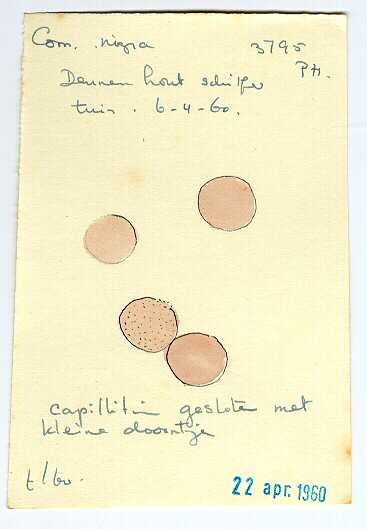 Com. nigra 3795
PH.
Dennenhout schilfer
tuin. 6-4-60.
capillitium gesloten met
kleine doorntjes
22 apr. 1960